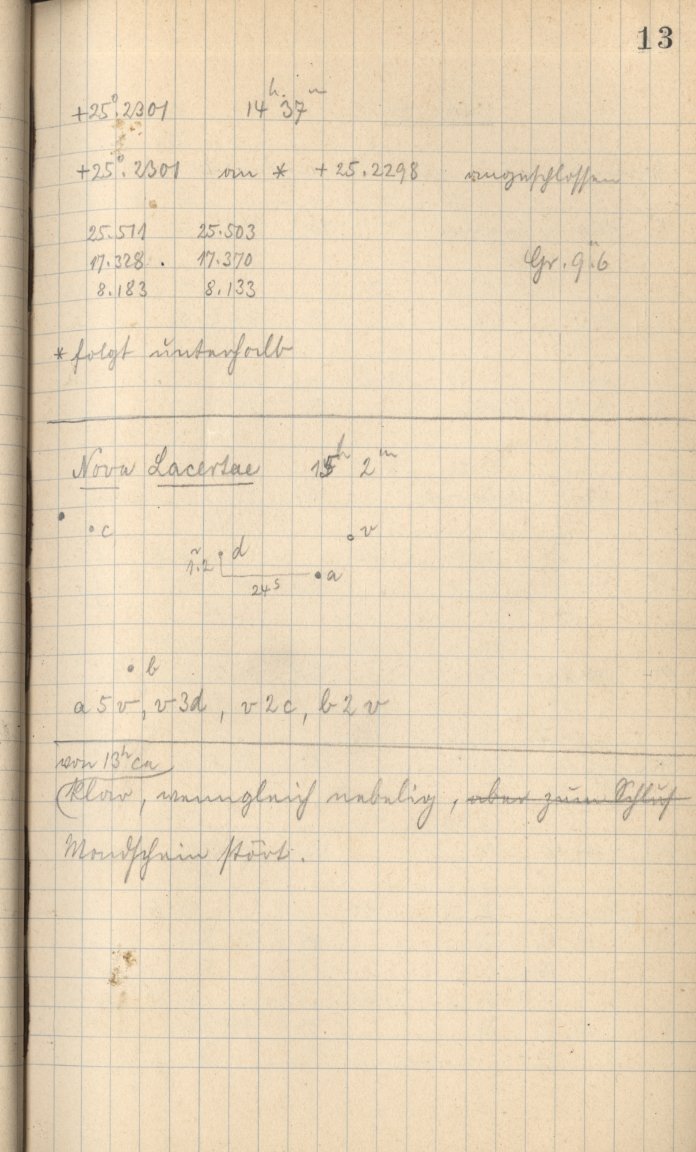 13
+25°.2301 14h 37m
+25°.2301 an * +25.2298 angeschlossen
25.511 25.503
17.328 . 17.370
8.183 8.133
Gr. 9m.6
* folgt unterhalb
Nova Lacertae 15h 2m
c
v
d
1.2
a
24s
b
a 5 v, v 3 d, v 2 c, b 2 v
von 13h ca
(Klar, wenngleich nebelig, aber zum Schluß
Mondschein stört.